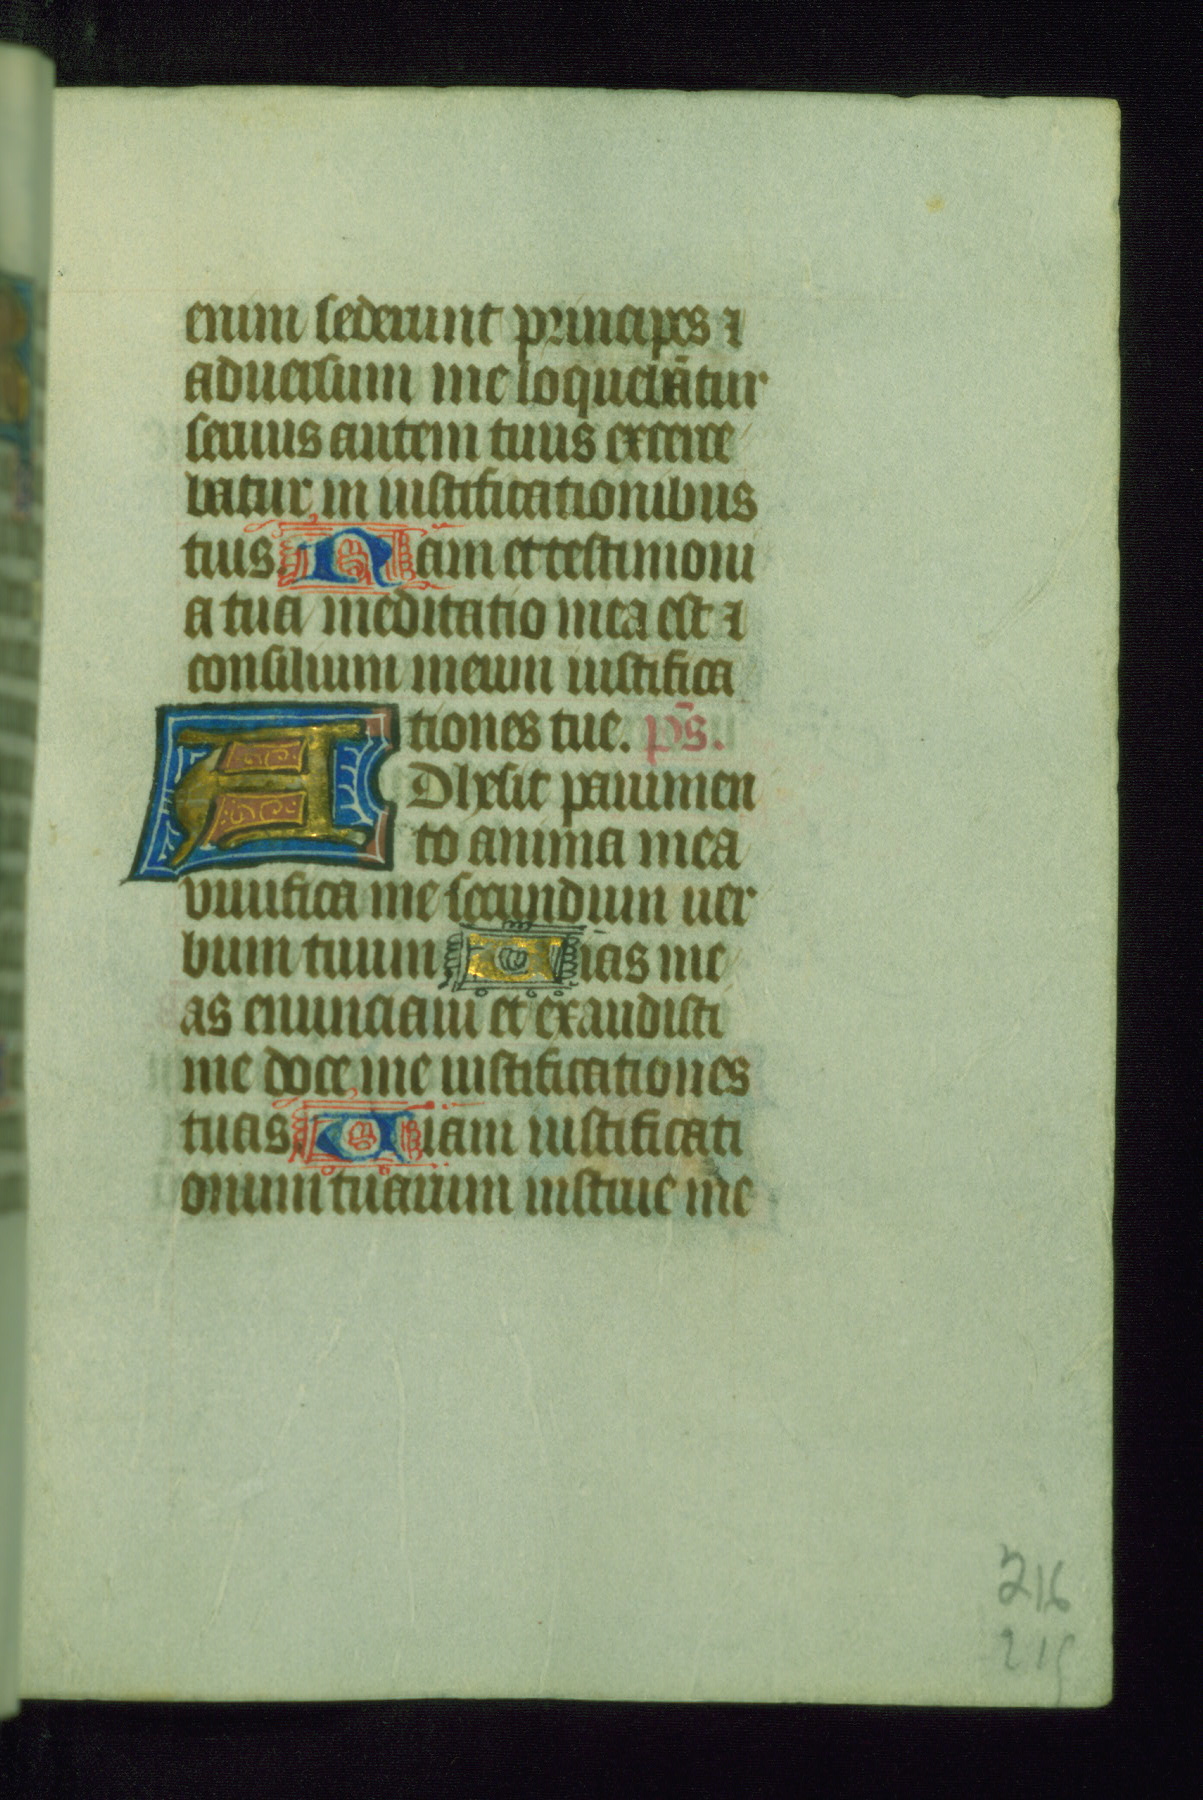 enim sederunt principes ⁊
aduersum me loquebātur
seruus autem tuus exerce
batur in iustificationibus
tuis. Nam et testimoni
a tua meditatio mea est ⁊
consilium meum iustifica
tiones tue. ps̄.
Adhesit pauimen
to anima mea
uiuifica me secundum uer
bum tuum Uias me
as enunciaui et exaudisti
me doce me iustificationes
tuas. Uiam iustificati
onum tuarum instrue me
216
215